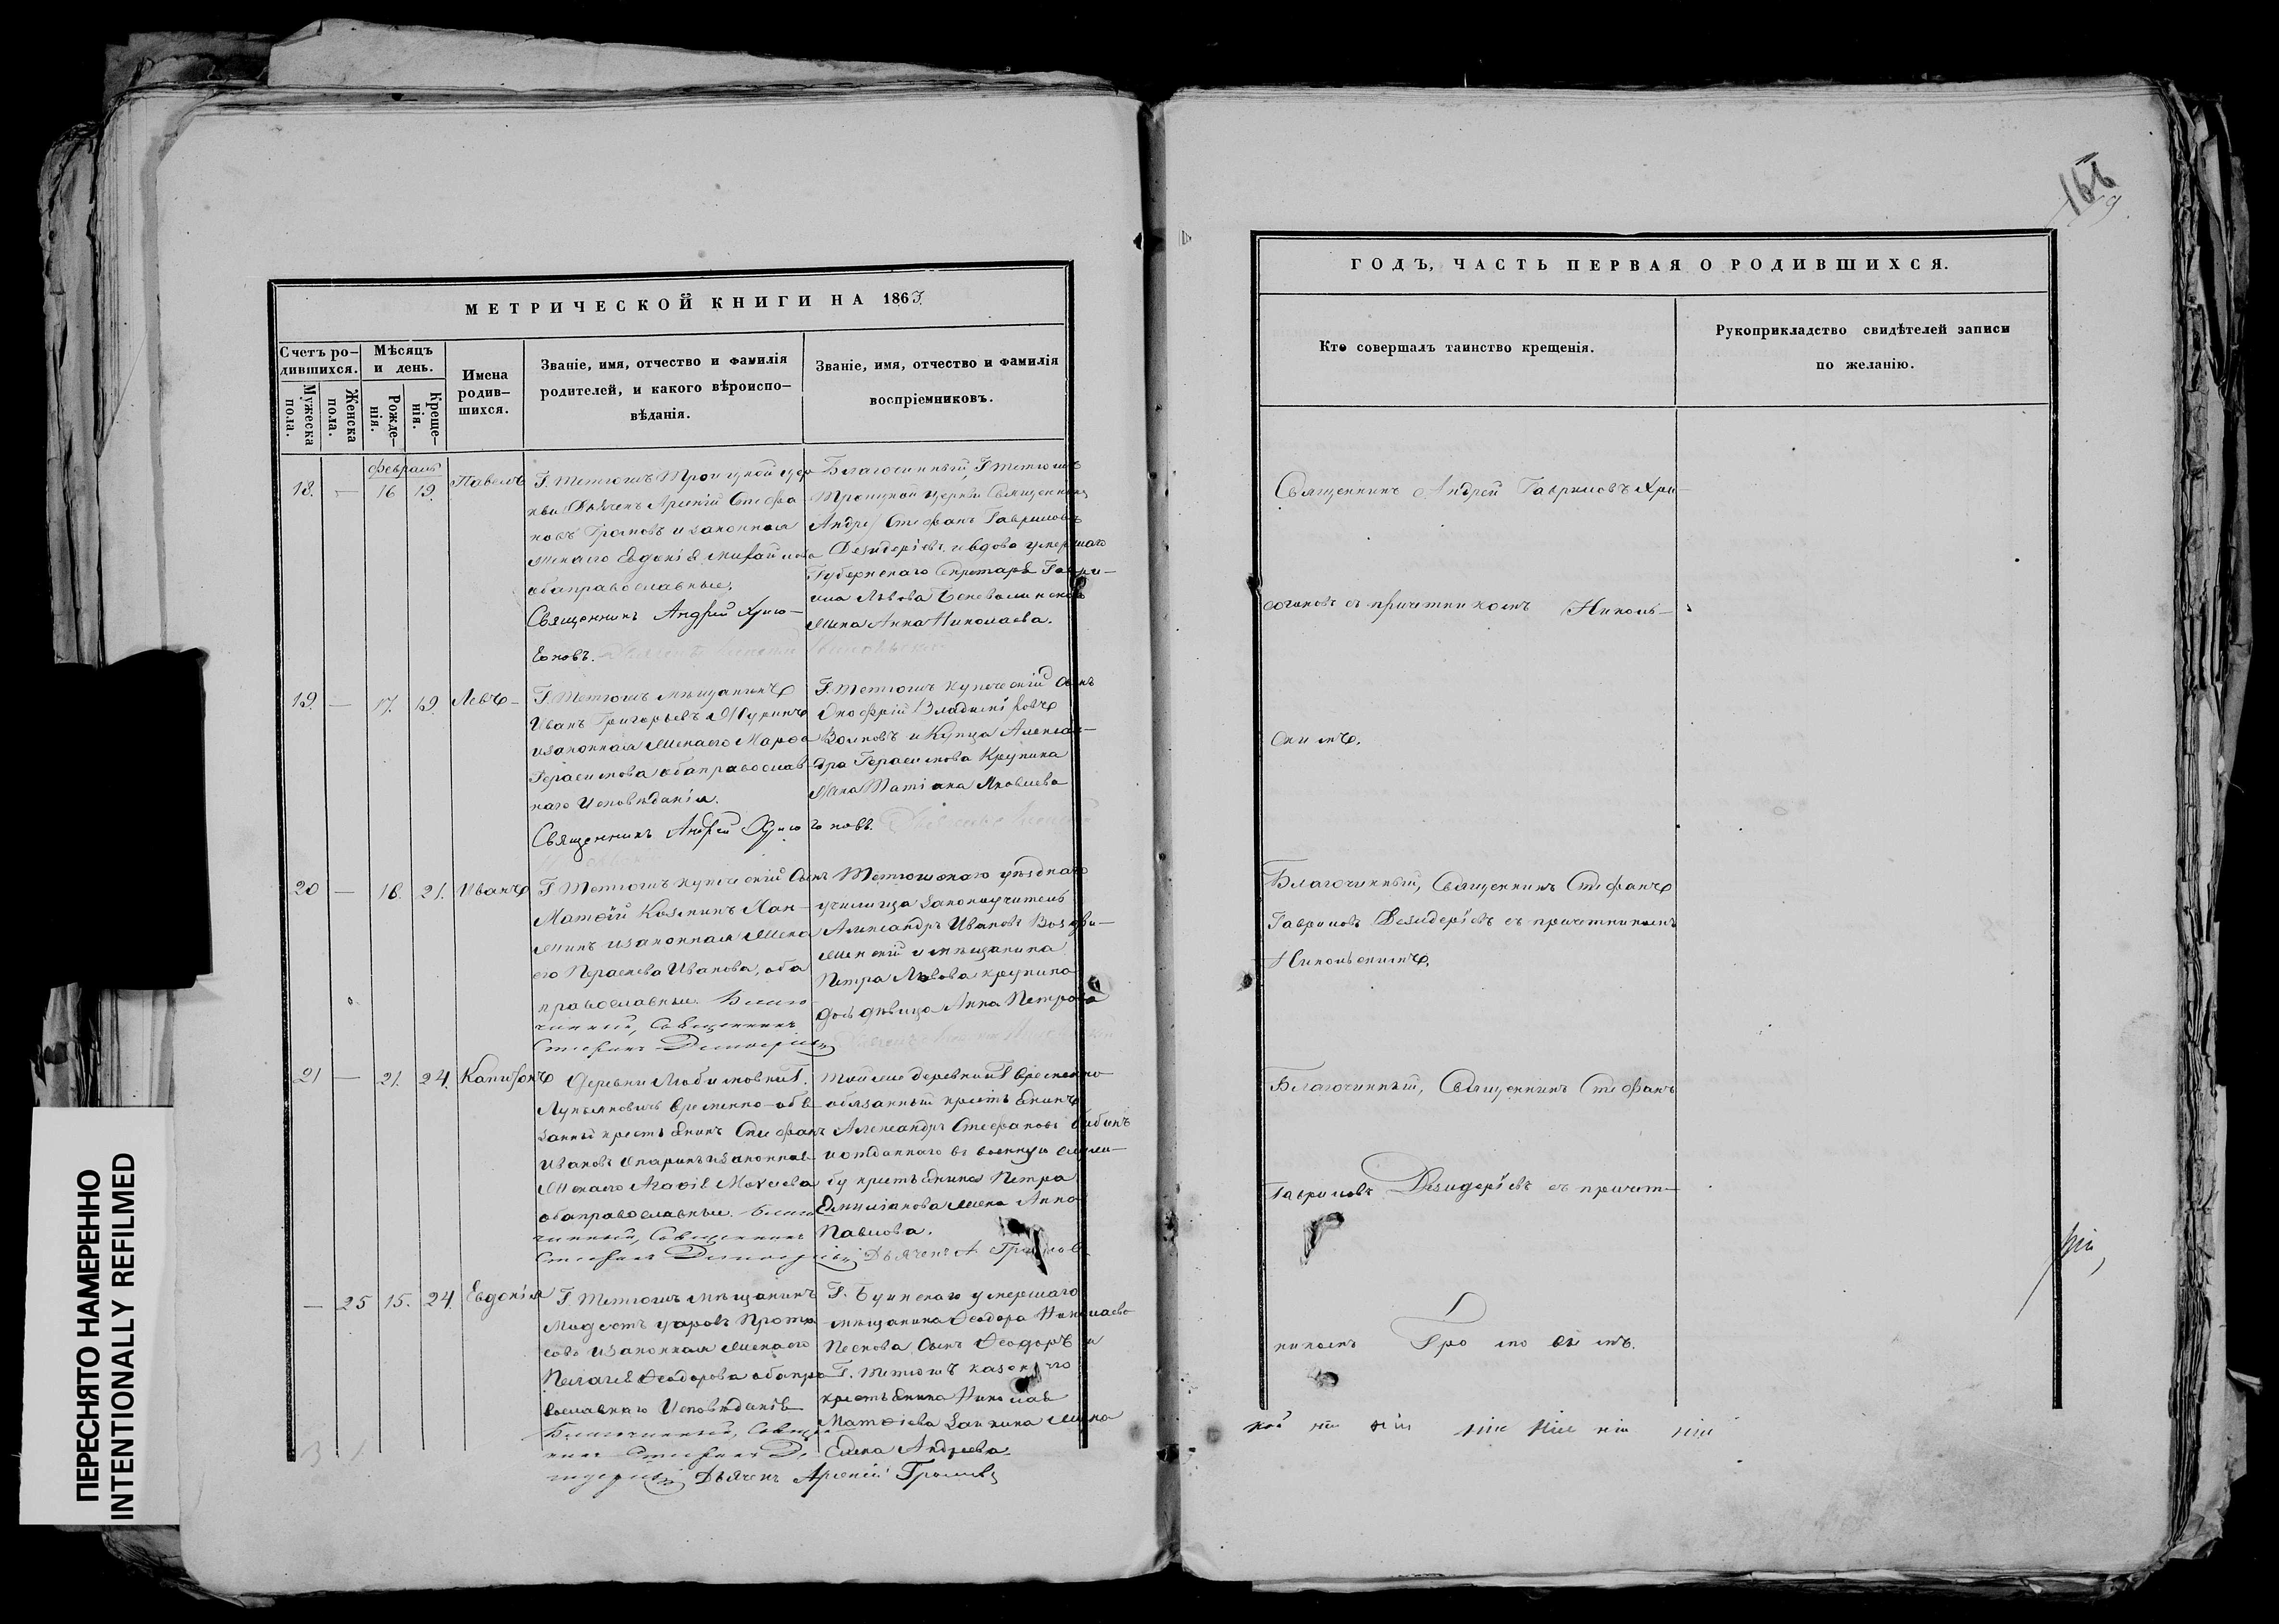 МЕТРИЧЕСКОЙ КНИГИ НА 1863.
Счетъ ро-
дившихся.
Мужеска
пола.
Женска
пола.
Мѣсяцъ
и день.
Рожде-
нія.
Креще-
нія.
Имена
родив-
шихся.
Званіе, имя, отчество и фамилія
родителей, и какого вѣроиспо-
вѣданія.
Званіе, имя, отчество и фамилія
воспріемниковъ.
Февраль
18. — 16 19. Павелъ
Г. Тетюшъ Троицкой цер
кви Дьячекъ Арсеній Стефа
новъ Громовъ и законная
жена его Евдокія Михайлова
оба православные.
Священникъ Андрей Хрис-
Благочинный, Г. Тетюшъ
Троицкой церкви Священникъ
Стефанъ Гавриловъ
Дезидеріевъ и вдова умершаго
Губернскаго Секретаря Гаври-
ила Львова
жена Анна Николаева.
19. — 17. 19. Левъ
Г. Тетюшъ мѣщанинъ
Иванъ Григорьевъ
и законная жена его Марѳа
Герасимова оба православ-
наго Исповѣданія.
Священникъ Андрей
Г. Тетюшъ купеческій Сынъ
Онофрій
Волковъ и Купца Алексан-
дра Герасимова Крупина
жена Татіана Яковлева
20 — 18. 21. Иванъ
Г. Тетюшъ купеческій Сынъ
Матѳій Козминъ
и законная жена
его Параскева Иванова, оба
православные. Благо
чинный, Священникъ
Стефанъ Дезидеріевъ
Тетюшскаго уѣзднаго
училища законоучитель
Александръ Ивановъ Воздви-
женскій и мѣщанина
Петра Львова Крупина
дочь дѣвица Анна Петрова
21 — 21. 24. Капитонъ
Деревни Любимовки
Лукьяновичъ временно-обя
занный крестьянинъ Стефанъ
Ивановъ и законная
жена его Агаѳія Мокеева
оба православные. Благо
чинный, Священникъ
Стефанъ Дезидеріевъ
Той же деревни временно
обязанный крестьянинъ
Александръ Стефановъ
и отданнаго въ военную служ-
бу крестьянина Петра
Емиліанова жена Анна
Павлова.
Дьячекъ А Громовъ
— 25 15. 24. Евдокія
Г. Тетюшъ мѣщанинъ
Модестъ
и законная жена его
Пелагія Ѳеодорова оба пра
вославнаго Исповѣданія
Благочинный, Священ
никъ Стефанъ Де
зидеріевъ Дьячекъ Арсеній Громовъ
Г. Буинскаго умершаго
мѣщанина Ѳеодора Николаева
Пескова Сынъ Ѳеодоръ и
Г. Тетюшъ
крестьянина Николая
Матѳіева жена
Елена Андреева
166
ГОДЪ, ЧАСТЬ ПЕРВАЯ О РОДИВШИХСЯ.
Кто совершалъ таинство крещенія.
Рукоприкладство свидѣтелей записи
по желанію.
Священникъ Андрей Гавриловъ Хри-
согоновъ съ причетникомъ Николь-
скимъ.
Благочинный, Священникъ Стефанъ
Гавриловъ Дезидеріевъ съ причетникомъ
Никольскимъ.
Благочинный, Священникъ Стефанъ
Гавриловъ Дезидеріевъ съ причет-
никомъ Громовымъ.
ПЕРЕСНЯТО НАМЕРЕННО
INTENTIONALLY REFILMED